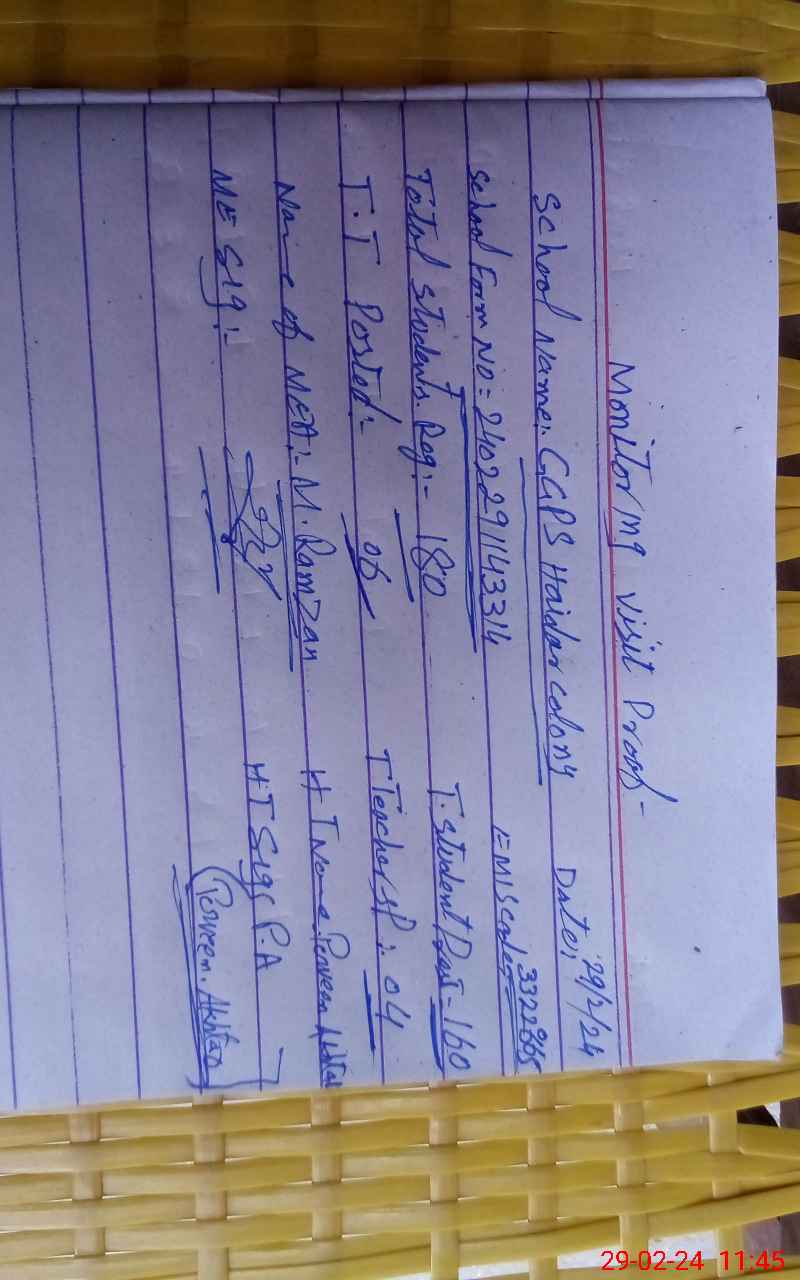 Monitoring visit Proof
School Name:. GGPS Haidar colony Date: 29/2/24
School Form No = 2402291143314 EMIS code: 3322865
Total Students. Reg:- 180 T. Student Prst = 160
T.T Posted:- 05 T Teachers P:. 04
Name of MEA:- M. Ramzan H T Name. Perveen Akhtar
ME Sig:- H T Sig: P.A
(Perveen. Akhtar)
29-02-24 11:45